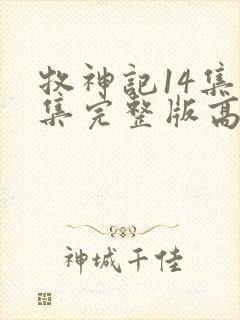 牧神記14集
集完整版高
神城千佳